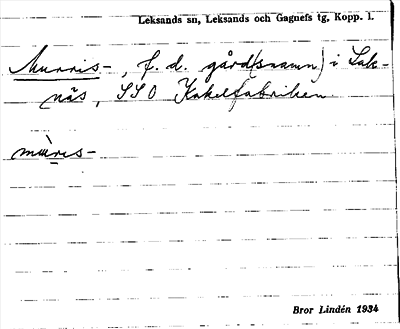 Leksands sn, Leksands och Gagnefs tg, Kopp. l.
Murris-, f. d. gård(snamn) i Lak-
näs, SSO Kakelfabriken.
mùris-
Bror Lindén 1934